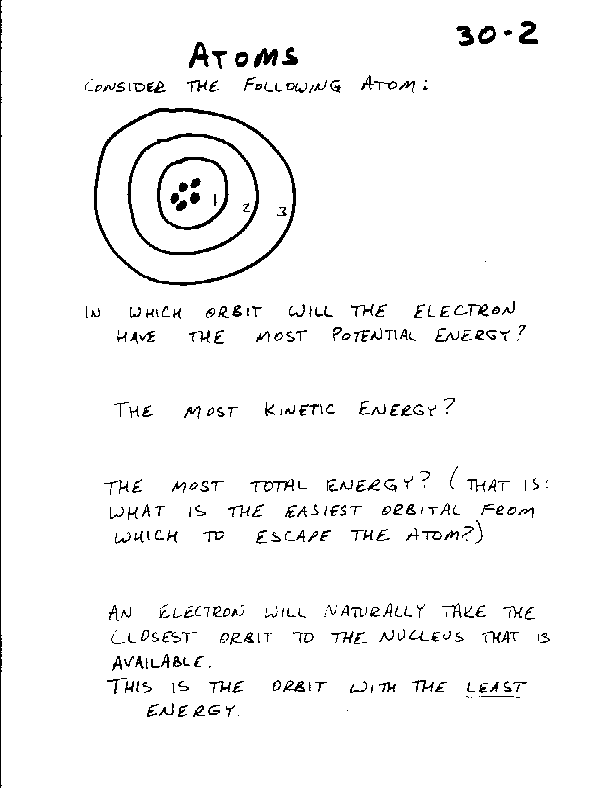 30-2
ATOMS
CONSIDER THE FOLLOWING ATOM:
1 2 3
IN WHICH ORBIT WILL THE ELECTRON
HAVE THE MOST POTENTIAL ENERGY?
THE MOST KINETIC ENERGY?
THE MOST TOTAL ENERGY? (THAT IS:
WHAT IS THE EASIEST ORBITAL FROM
WHICH TO ESCAPE THE ATOM?)
AN ELECTRON WILL NATURALLY TAKE THE
CLOSEST ORBIT TO THE NUCLEUS THAT IS
AVAILABLE.
THIS IS THE ORBIT WITH THE LEAST
ENERGY.